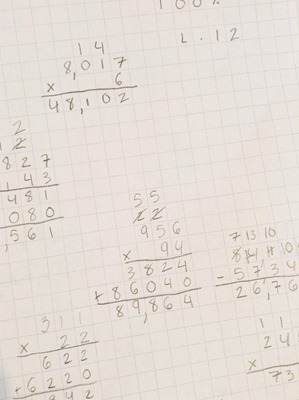 100%
L.12
1 4
8,017
x 6
48,102
2
1 2
827
143
481
080
,561
5 5
2 2
956
x 94
3824
+ 86040
89,864
7 13 10
84,110
- 5734
26,76
3 1 1
x 2 2
6 2 2
+ 6 2 2 0
842
1 1
24
x
73